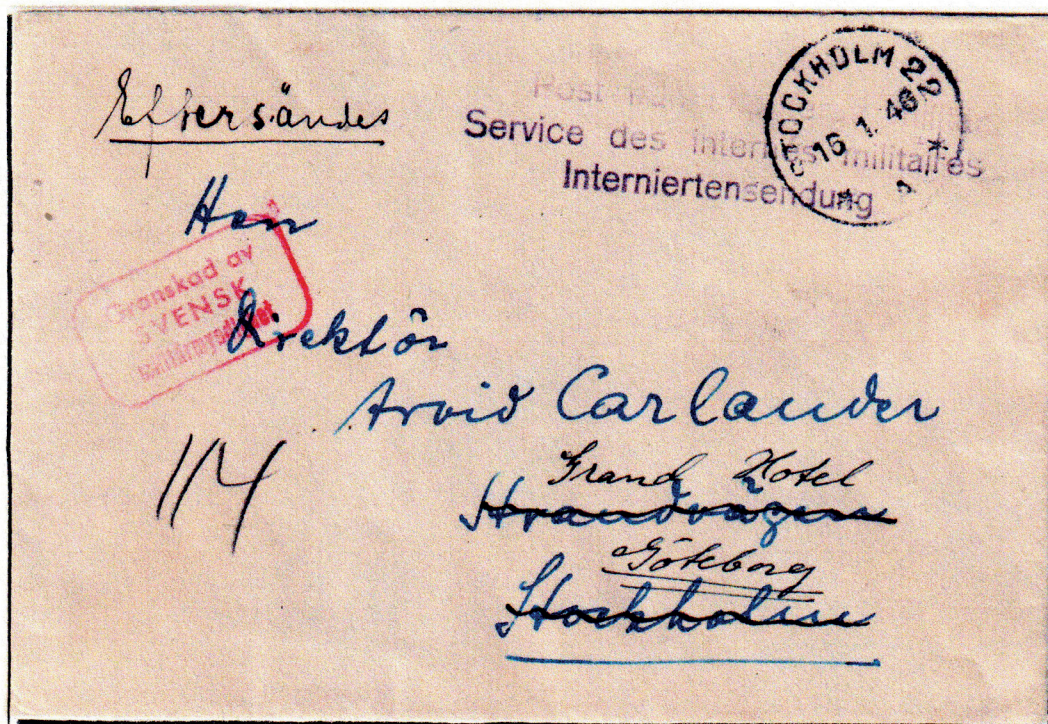 Eftersändes
Service des internés militaires
Interniertensendung
STOCKHOLM 22
16 1. 46
Herr
Granskad av
SVENSK
Direktör
Arvid Carlander
Grand Hotel
Strandvägen
Göteborg
Stockholm
114